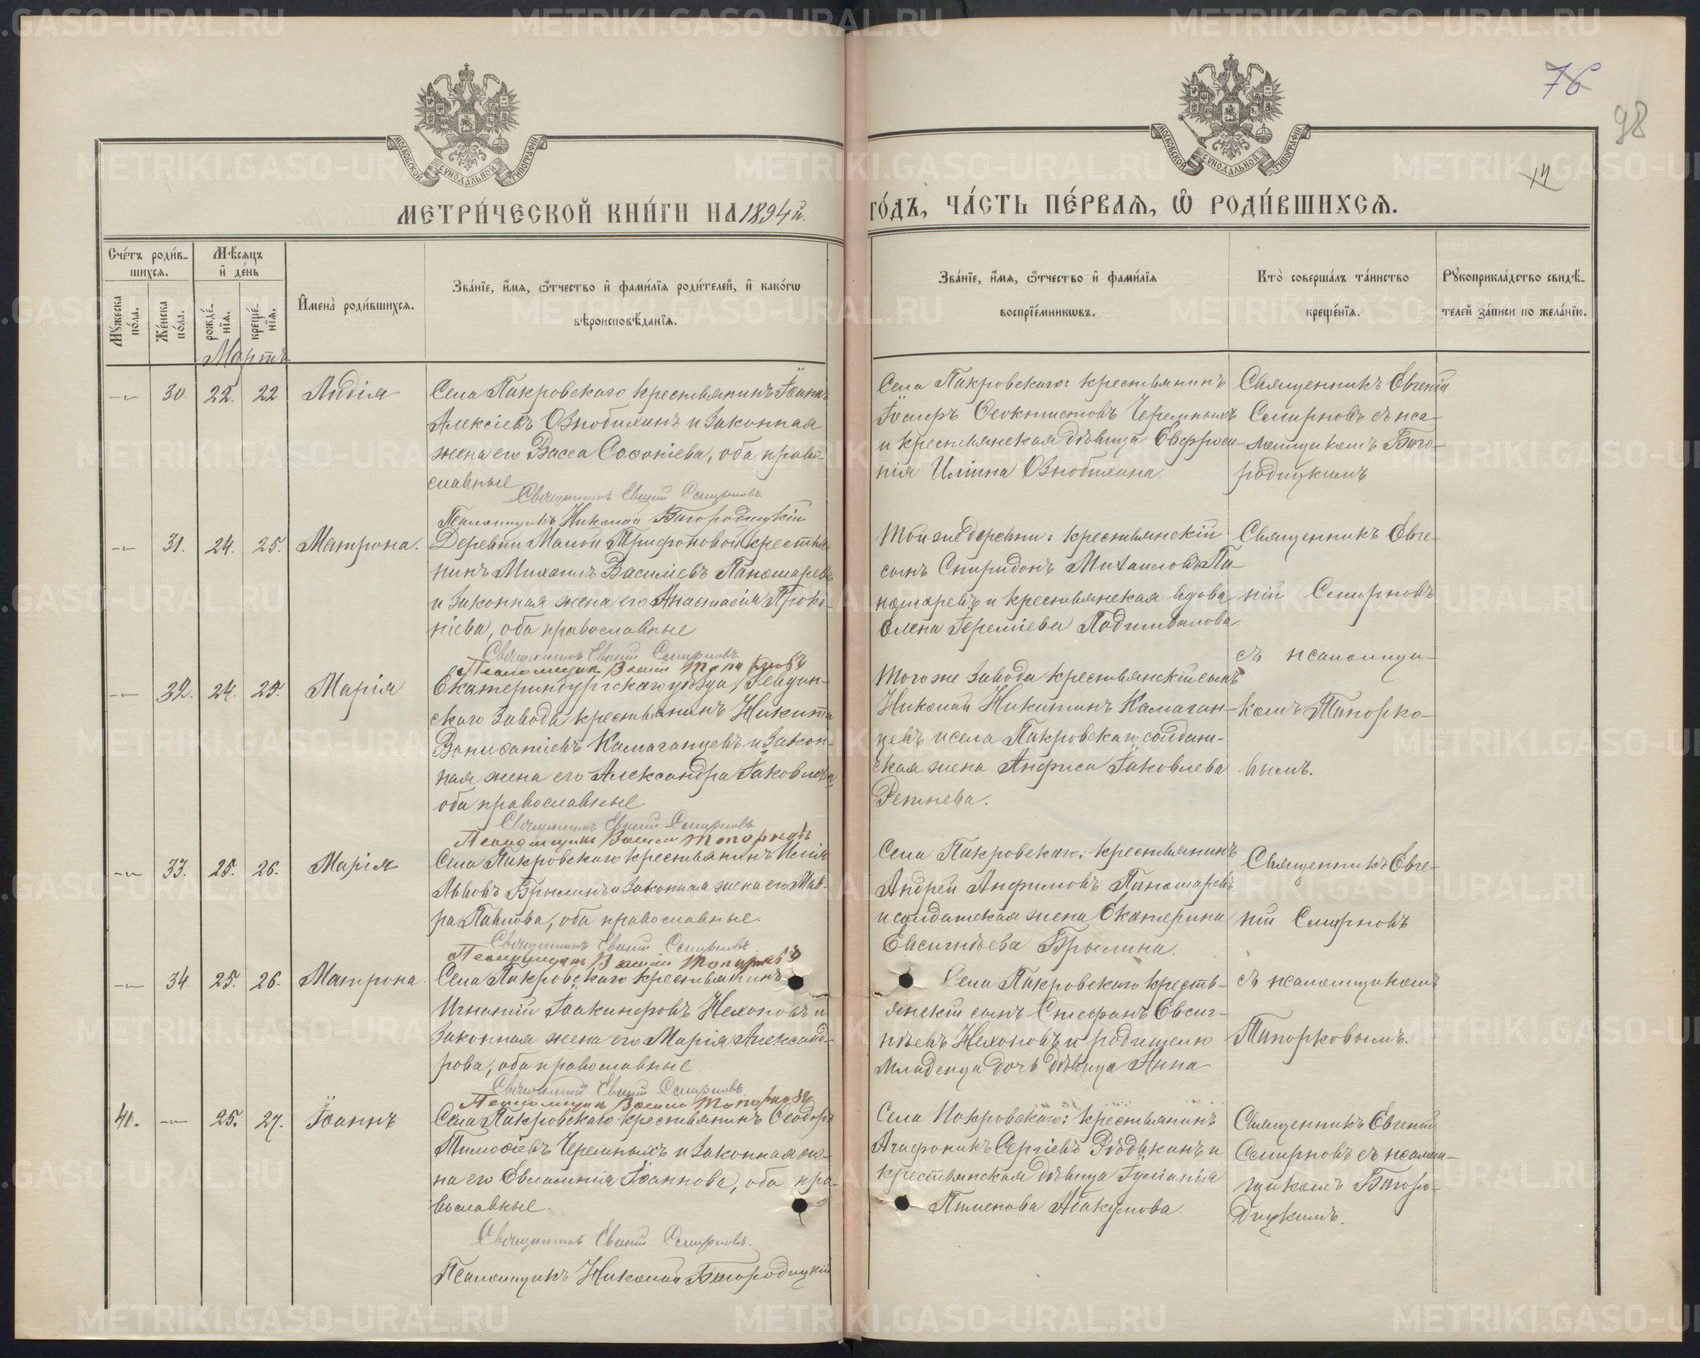 76
98
12
МОСКОВСКОЙ СѴНОДАЛЬНОЙ ТИПОГРАФІИ
МОСКОВСКОЙ СѴНОДАЛЬНОЙ ТИПОГРАФІИ
МЕТРИ́ЧЕСКОЙ КНИ́ГИ НА 1894 й.
ГО́ДЪ, ЧА́СТЬ ПЕ́РВАЯ, Ѡ РОДИ́ВШИХСЯ.
Сче́тъ роди́в-
шихся.
Мꙋ́жеска по́ла.
Же́нска по́ла.
Мѣ́сяцъ
и҆ де́нь
рожде́-
нїя.
креще́-
нїя.
И҆мена̀ роди́вшихся.
Зва́нїе, и҆́мя, ѻ҆́тчество и҆ фами́лїя роди́телей, и҆ како́гѡ
вѣроисповѣ́данїя.
Зва́нїе, и҆́мя, ѻ҆́тчество и҆ фами́лїя
воспрїе́мникѡвъ.
Кто̀ соверша́лъ та́инство
креще́нїя.
Рꙋкоприкла́дство свидѣ́-
телей за́писи по жела́нїю.
Мартъ
30. 22. 22 Лидія
Села Покровскаго крестьянинъ Іоаннъ
Алексіевъ Ознобихинъ и законная
жена его Васса Софоніева, оба право-
славные
Священникъ Евгеній Смирновъ
Псаломщикъ Николай Богородицкій
Села Покровскаго: крестьянинъ
Іосифъ Феоктистовъ Черемныхъ
и крестьянская дѣвица Евфроси-
нія Иліина Ознобихина.
Священникъ Евгеній
Смирновъ съ пса-
ломщикомъ Бого-
родицкимъ
31. 24. 25. Матрона.
Деревни Малой Трифоновой крестья-
нинъ Михаилъ Василіевъ Паномаревъ
и законная жена его Анастасія Проко-
піева, оба православные
Священникъ Евгеній Смирновъ
Псаломщикъ Топорковъ
Той же деревни: крестьянскій
сынъ Спиридонъ Михаиловъ Па-
номаревъ и крестьянская вдова
Елена Іереміева Подшивалова.
Священникъ Евге-
ній Смирновъ
съ псаломщи-
комъ Топорко-
вымъ.
32. 24. 25. Марія
Екатеринбургскаго уѣзда, Ревдин-
скаго завода крестьянинъ Никита
Калаганцевъ и закон-
ная жена его Александра Іаковлева,
оба православные
Священникъ Евгеній Смирновъ
Псаломщикъ Топорковъ
Того же завода крестьянскій сынъ
Николай Никитинъ Калаган-
цевъ и села Покровскаго солдат-
ская жена Анфиса Іаковлева
Репнева.
33. 25. 26. Марія
Села Покровскаго крестьянинъ Илія
Львовъ Брылинъ и законная жена его Мав-
ра Павлова, оба православные.
Священникъ Евгеній Смирновъ
Псаломщикъ Топорковъ
Села Покровскаго: крестьянинъ
Андрей Анфимовъ Паномаревъ
и солдатская жена Екатерина
Евсигніева Брылина
Священникъ Евге-
ній Смирновъ
съ псаломщикомъ
Топорковымъ.
34 25. 26. Матрона
Села Покровскаго крестьянинъ
Игнатій Іоакинфовъ Нехоновъ и
законная жена его Марія Александ-
рова, оба православные
Священникъ Евгеній Смирновъ
Псаломщикъ Топорковъ
Села Покровскаго кресть-
янскій сынъ Стефанъ Евсиг-
ніевъ Нехоновъ и родителю
младенца дочь дѣвица Анна
41. 25. 27. Іоаннъ
Села Покровскаго крестьянинъ Феодоръ
Тимофіевъ Черемныхъ и законная же-
на его Евлампія Іоаннова, оба пра-
вославные.
Священникъ Евгеній Смирновъ
Псаломщикъ Николай Богородицкій
Села Покровскаго: крестьянинъ
Агафоникъ Сергіевъ Рѣдькинъ и
крестьянская дѣвица Іуліанія
Пименова Абакумова
Священникъ Евгеній
Смирновъ съ псалом-
щикомъ Богоро-
дицкимъ.
METRIKI.GASO-URAL.RU